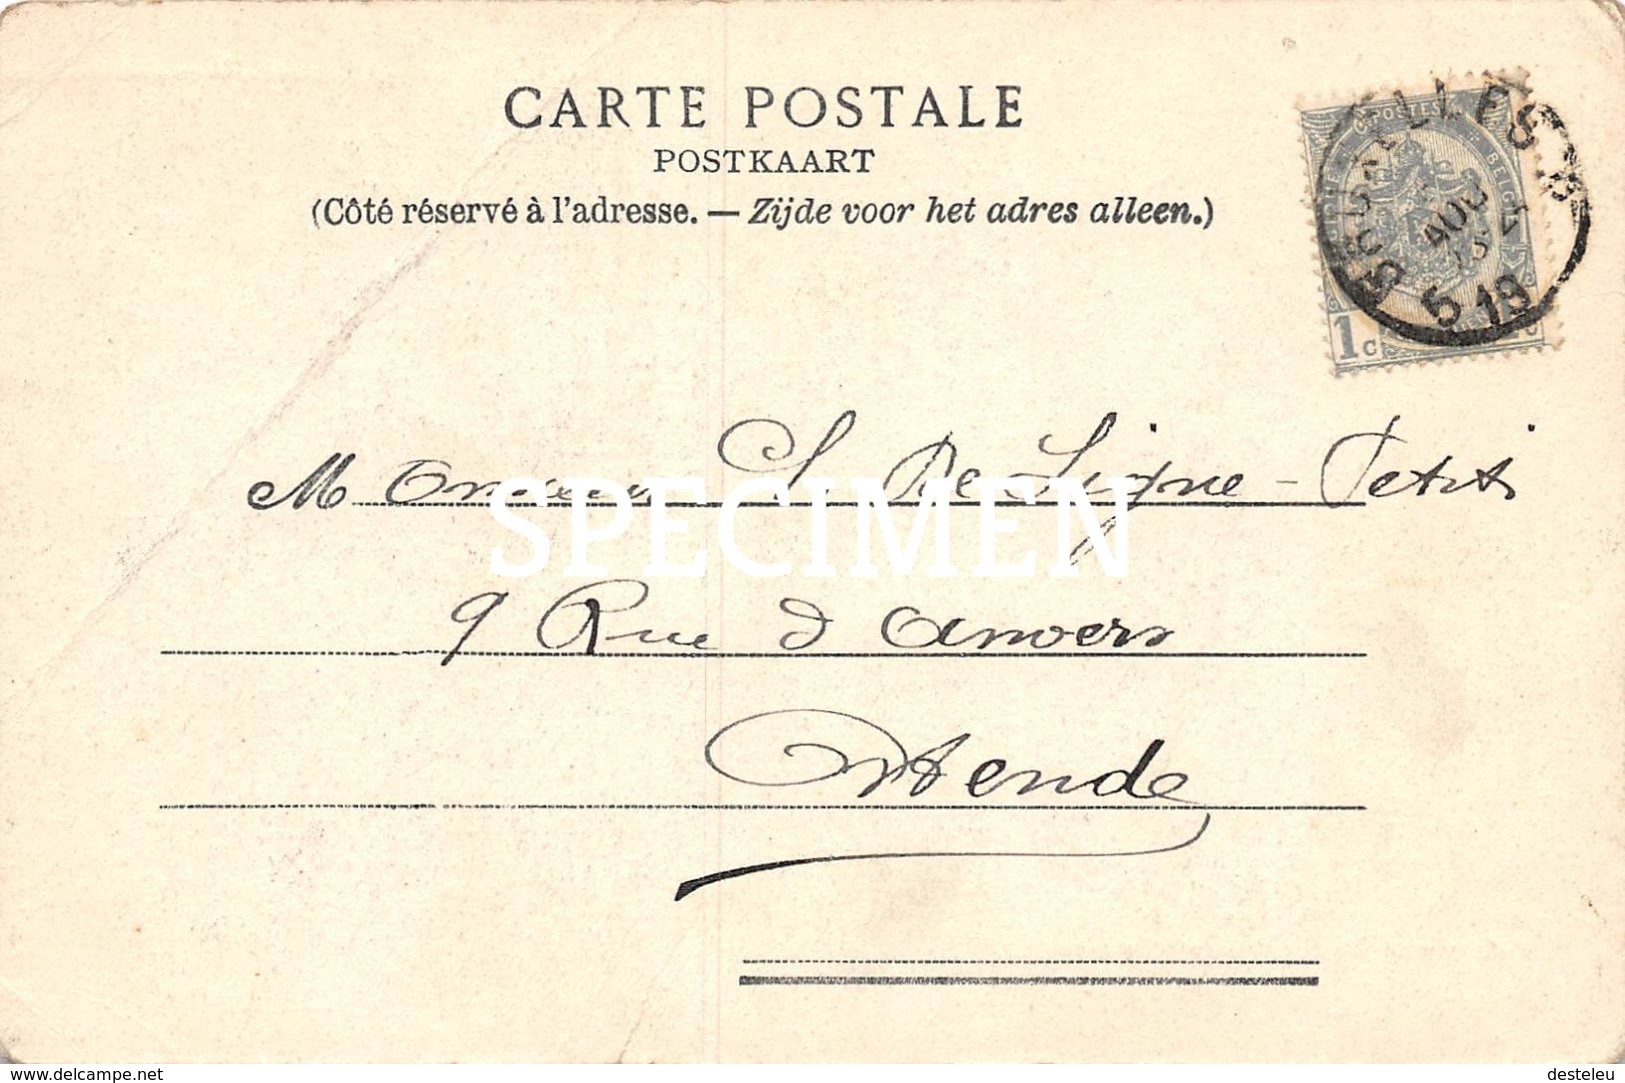 CARTE POSTALE
POSTKAART
(Côté réservé à l'adresse. — Zijde voor het adres alleen.)
POSTES BELGIQUE
BRUXELLES
AOU
5 19
1c
Monsieur Ch. De Ligne-Petit
SPECIMEN
9 Rue d'Anvers
Ostende
www.delcampe.net
desteleu